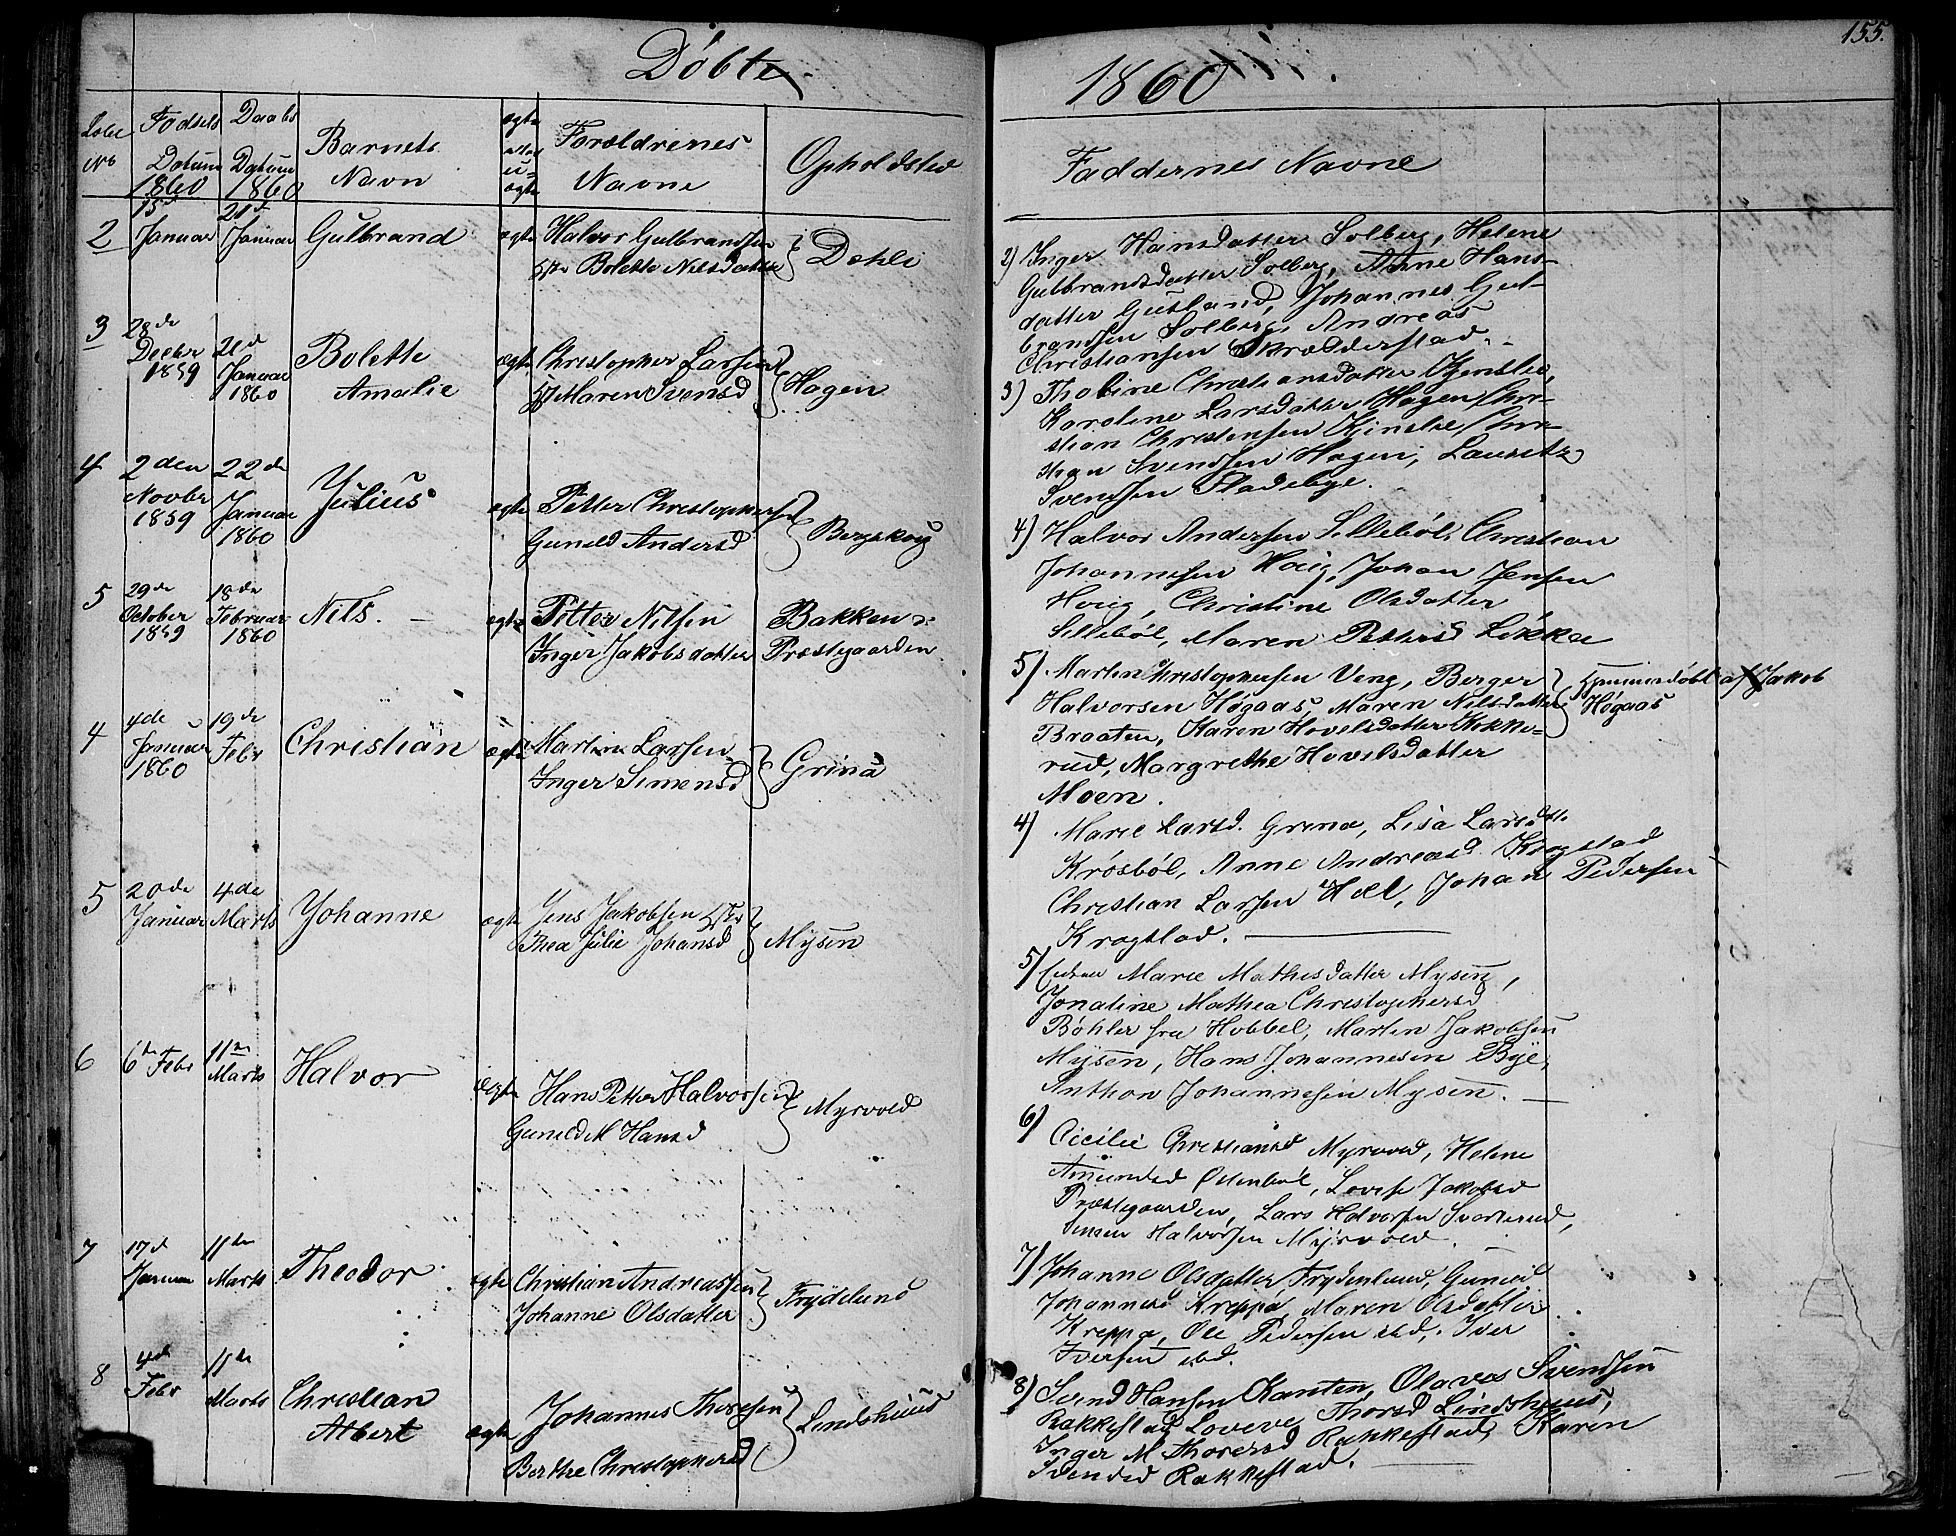 155.
Døbte
1860
Løbe No
Fødsels Datum 1860
Daabs Datum 1860
Barnets Navn
ægte eller u- ægte
Forældrenes Navne
Opholdsted
Faddernes Navne
2 15d Januar 21d Januar Gulbrand ægte Halvor Gulbrandsen
Bolette Nilsdatter Dæhli
3 28de Decbr 1859 21d Januar 1860 Bolette Amalie ægte Christopher Larsen
Maren Svensd Hagen
4 2den Novbr 1859 22de Januar 1860 Julius ægte Petter Christophersen
Guneld Andersd Bergskoug
5 29de October 1859 18de Februar 1860 Nils. ægte Petter Nilsen
Inger Jakobsdatter Bakken Præstegaarden
4 4de Januar 1860 19de Febr Christian ægte Martin Larsen
Inger Simensd Grina
5 20de Januar 4de Marts Johanne ægte Jens Jakobsen
Thea Julie Johansd Mysen
6 6te Febr 11te Marts Halvor ægte Hans Petter Halvorsen
Guneld M Hansd Myrvold
7 17d Januar 11te Marts Theodor ægte Christian Andreassen
Johanne Olsdatter Frydelund
8 4de Febr 11te Marts Christian Albert ægte Johannes Thoresen
Berthe Christophersd Lindshuus
2) Inger Hansdatter Solberg, Helene
Gulbrandsdatter Solberg, Anne Hans-
datter Gutland, Johannes Gul-
brandsen Solberg, Andreas
Christiansen Skrædderstad.
3) Thobine Christiansdatter
Karoline Larsdatter Hagen, Chri-
stian Christensen Chri-
stian Svendsen Hagen, Lauritz
Svendsen Sladebye.
4) Halvor Andersen Sillebøl, Christian
Johannesen Houg, Johan Jensen
Houg, Christine Olsdatter
Sillebøl, Maren Pettersd Løkka
5) Martin Christophersen Veng, Berger
Halvorsen Høgaas, Maren Nilsdatter
Braaten, Karen Hovelsdatter Kikke-
rud, Margrethe Hovelsdatter
Moen.
hjemmedøbt af Jakob
Høgaas
4) Marie Larsd. Grina, Lisa Larsdtr
Krosbøl, Anne Andreasd Krogstad
Christian Larsen Hæl, Johan Pedersen
Krogstad.
5) Marie Mathisdatter Mysen,
Jonatine Mathea Christophersd
Bøhler fra Hobbel, Martin Jakobsen
Mysen, Hans Johannesen Bye,
Anthon Johannesen Mysen.
6) Cicilie Christiansd Myrvold, Helene
Amundsd Lovise Jakobsd
Præstegaarden, Lars Halvorsen Svarterud,
Simen Halvorsen Myrvold.
7) Johanne Olsdatter Frydenlund, Guneld
Johannesd Kreppa, Maren Olsdatter
Kreppa, Ole Pedersen ibd, Iver
Iversen ibd.
8) Svend Hansen Kanten, Olaves Svendsen
Rakkestad, Lovise Thorsd Lindshuus,
Inger M Thorersd Rakkestad, Karen
Svendsd Rakkestad.